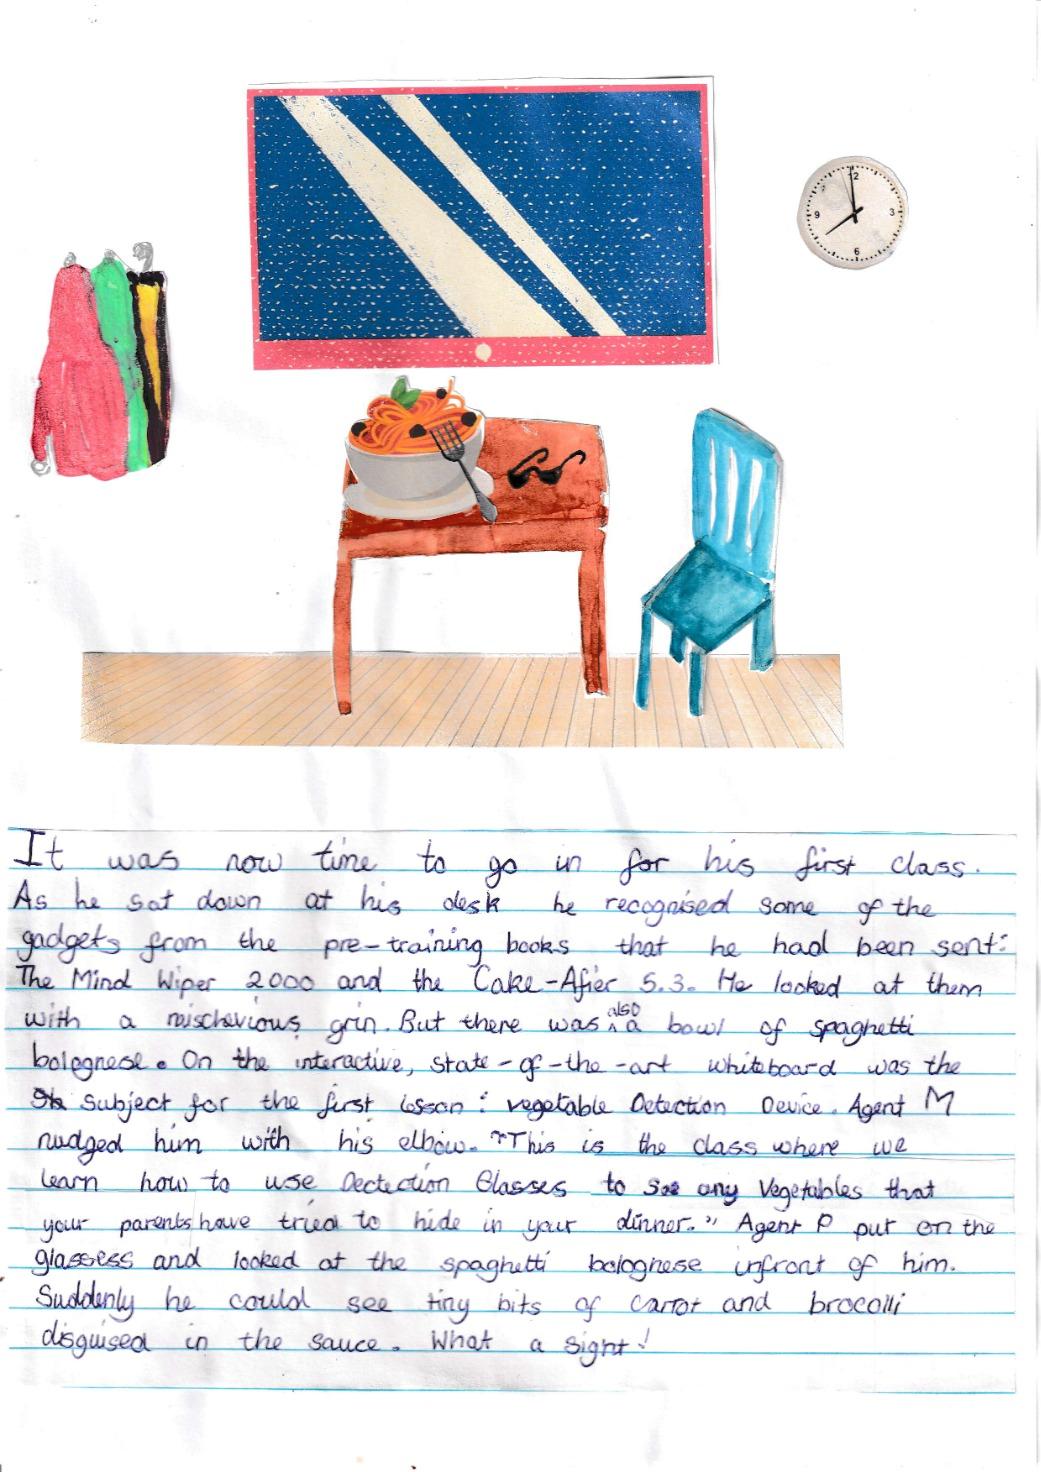 12
3
6
9
It was now time to go in for his first class.
As he sat down at his desk he recognised some of the
gadgets from the pre-training books that he had been sent:
The Mind Wiper 2000 and the Cake-Afier 5.3. He looked at them
with a mischevious grin. But there was also a bowl of spaghetti
bolegnese. On the interactive, state-of-the-art whiteboard was the
subject for the first lesson: vegetable Detection Device. Agent M
nudged him with his elbow. "This is the class where we
learn how to use Dectection Glasses to see any Vegetables that
your parents have tried to hide in your dinner." Agent P put on the
glassess and looked at the spaghetti bolognese infront of him.
Suddenly he could see tiny bits of carrot and brocolli
disguised in the sauce. What a sight!